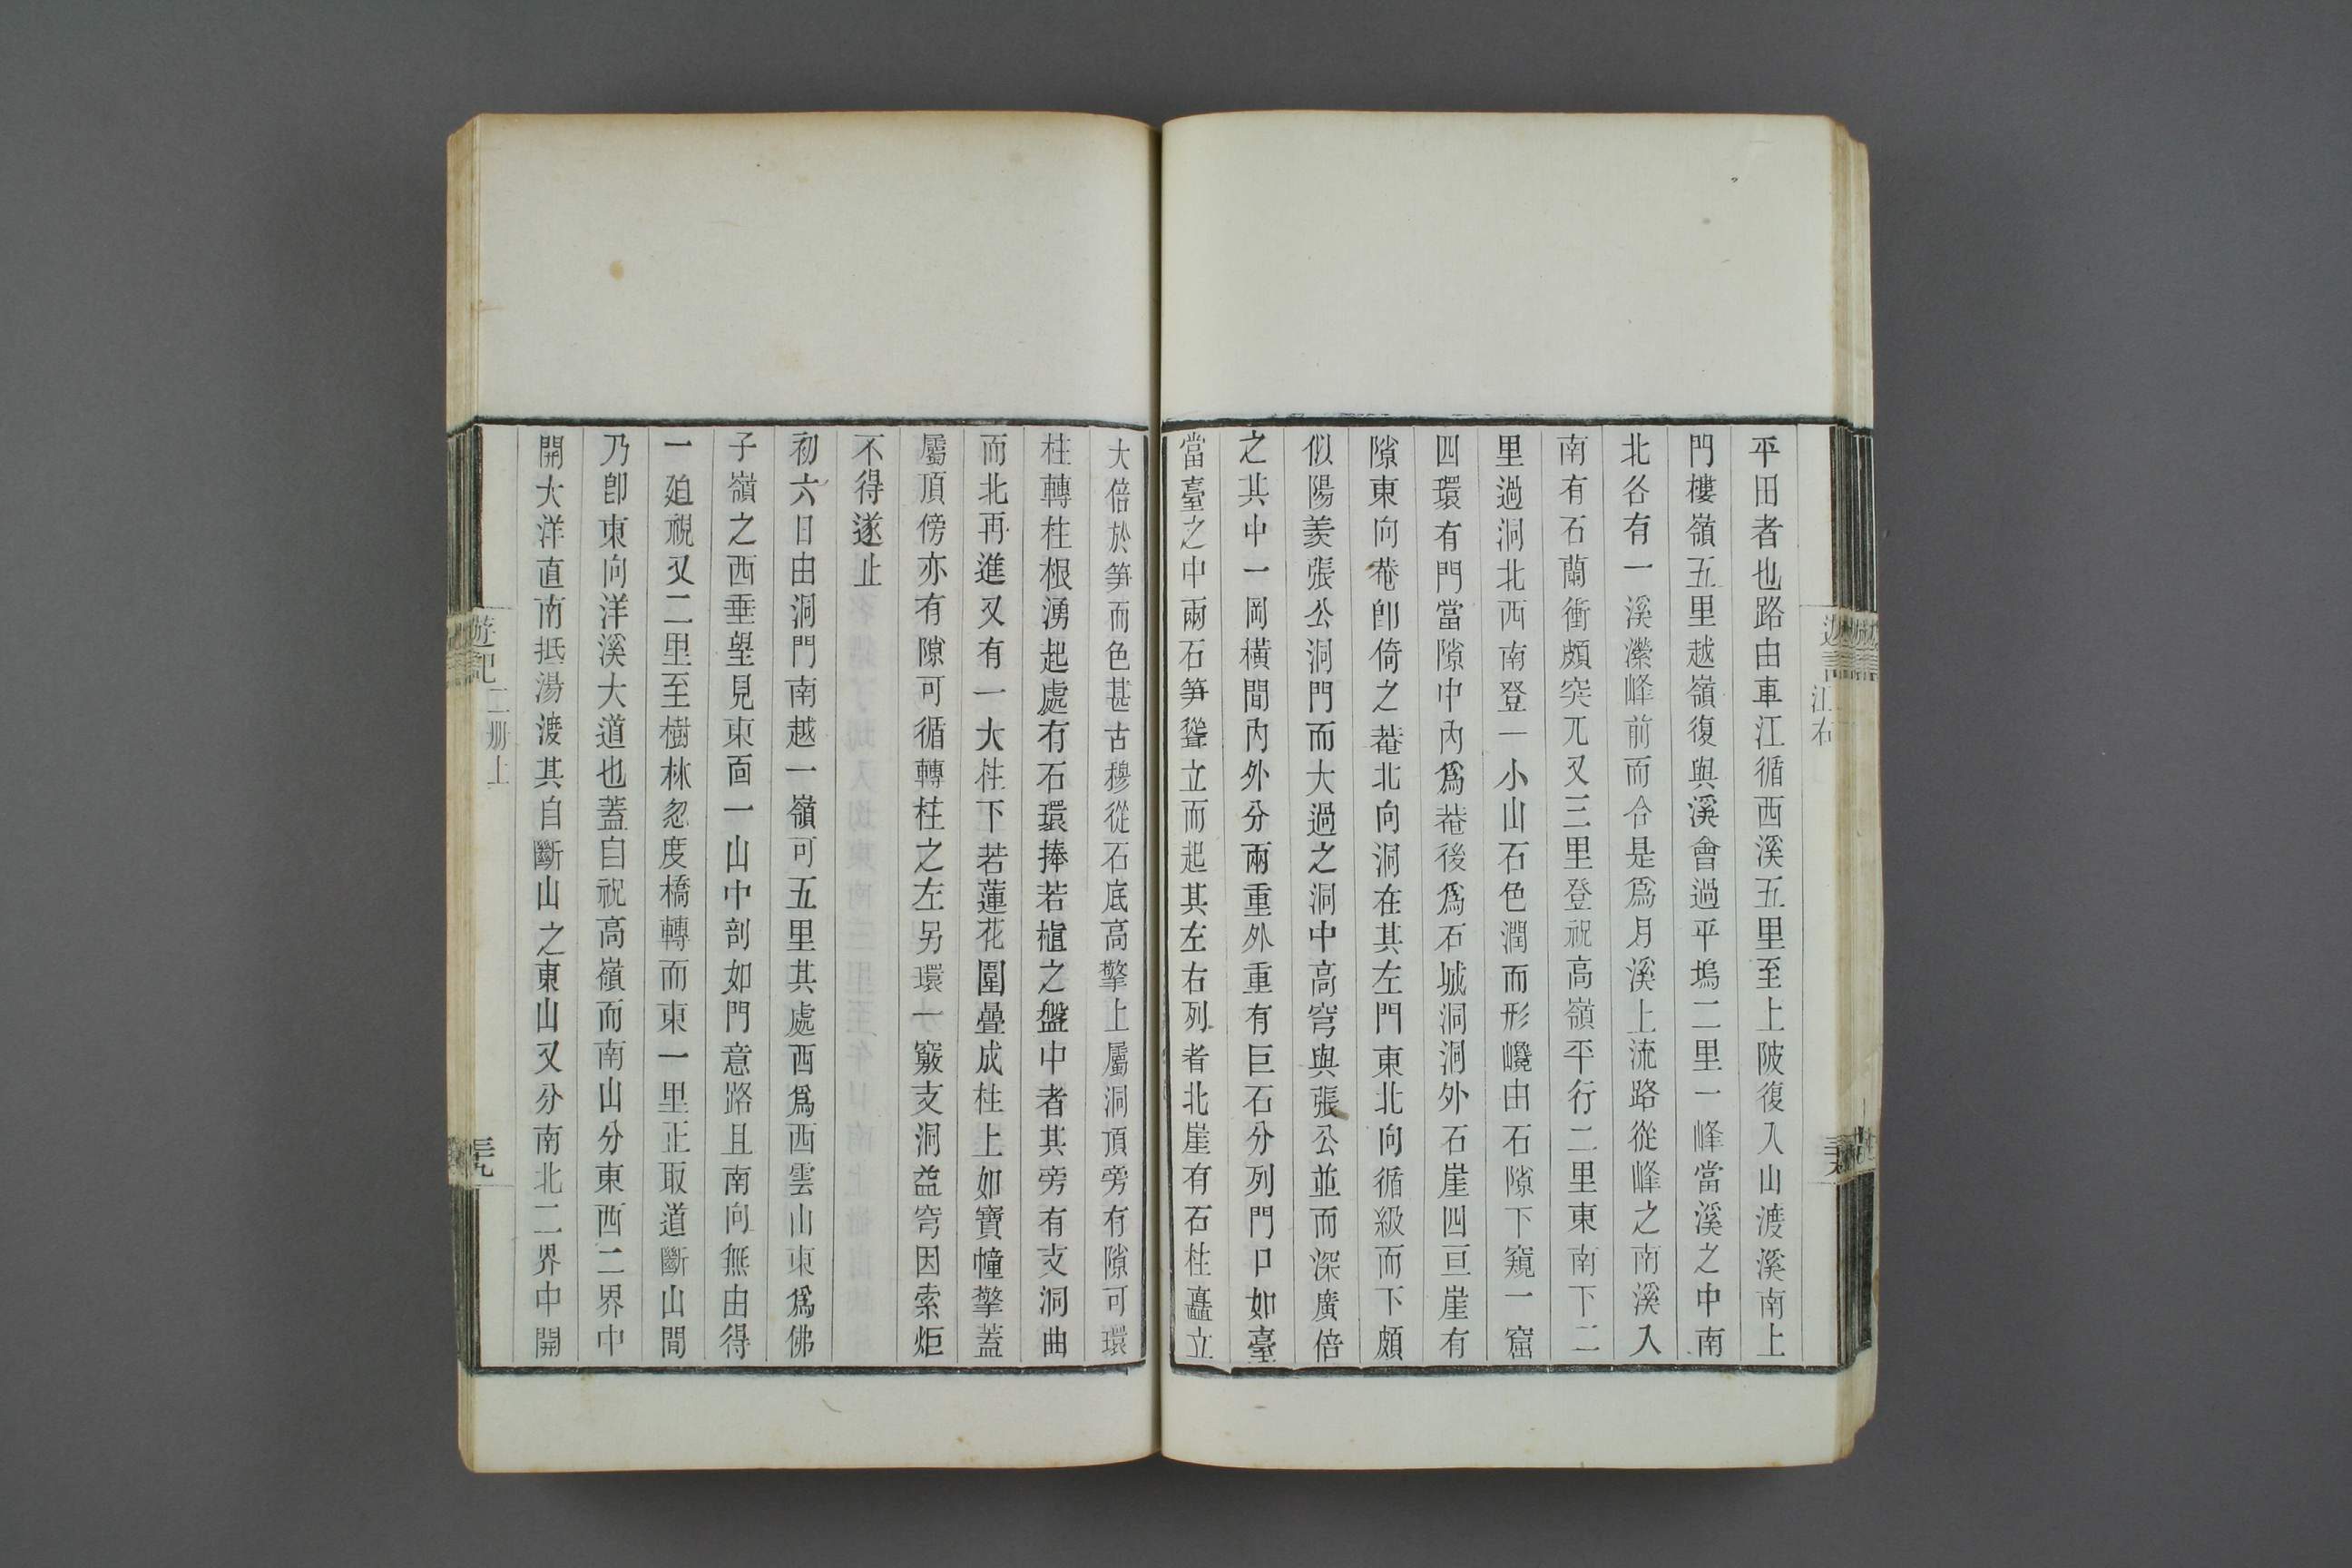 平田者也路由車江循西溪五里至上陂復入山渡溪南上
門樓嶺五里越嶺復與溪會過平塢二里一峰當溪之中南
北各有一溪瀠峰前而合是爲月溪上流路從峰之南溪入
南有石蘭衝頗突兀又三里登祝高嶺平行二里東南下二
里過洞北西南登一小山石色潤而形巉由石隙下窺一窟
四環有門當隙中內爲菴後爲石城洞洞外石崖四亘崖有
隙東向菴卽倚之菴北向洞在其左門東北向循級而下頗
似陽羨張公洞門而大過之洞中高穹與張公並而深廣倍
之其中一岡橫間內外分兩重外重有巨石分列門口如臺
當臺之中兩石笋聳立而起其左右列者北崖有石柱矗立
大倍於笋而色甚古穆從石底高擎上屬洞頂旁有隙可環
柱轉柱根湧起處有石環捧若植之盤中者其旁有支洞曲
而北再進又有一大柱下若蓮花圍疊成柱上如寶幢擎蓋
屬頂傍亦有隙可循轉柱之左另環一竅支洞益穹因索炬
不得遂止
初六日由洞門南越一嶺可五里其處西爲西雲山東爲佛
子嶺之西垂望見東面一山中剖如門意路且南向無由得
一廹視又二里至樹林忽度橋轉而東一里正取道斷山間
乃卽東向洋溪大道也蓋自祝高嶺而南山分東西二界中
開大洋直南抵湯渡其自斷山之東山又分南北二界中開
遊記 二册上